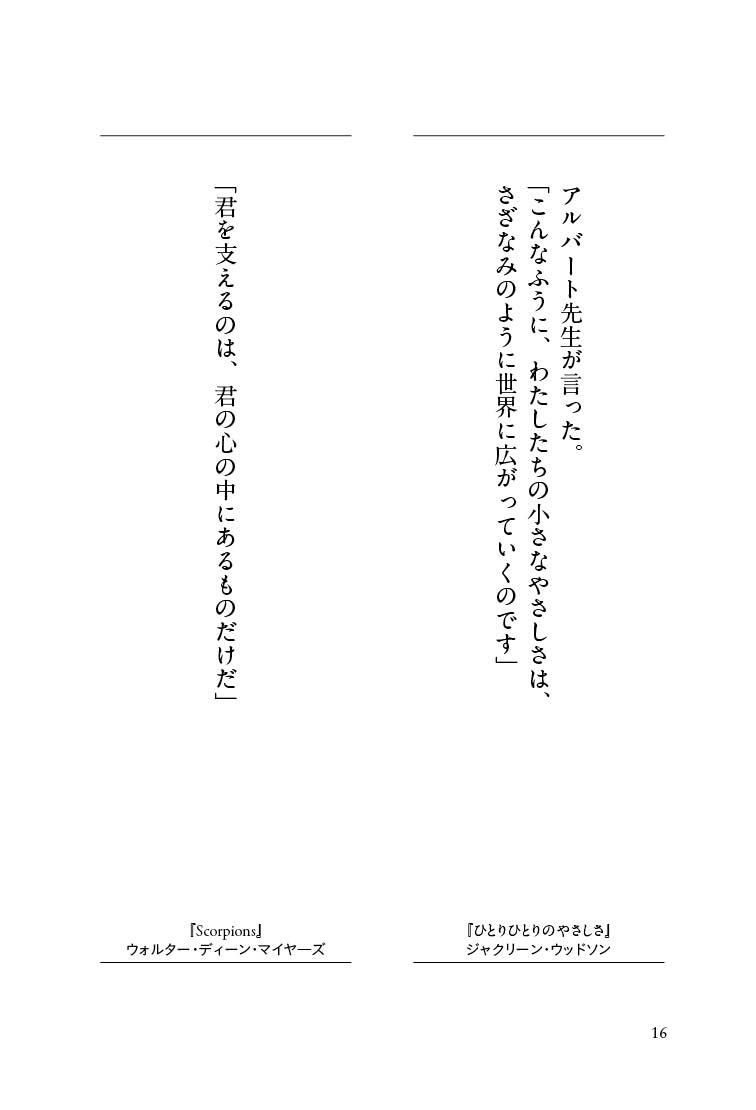 アルバート先生が言った。
「こんなふうに、わたしたちの小さなやさしさは、
さざなみのように世界に広がっていくのです」
『ひとりひとりの やさしさ』
ジャクリーン・ウッドソン
「君を支えるのは、君の心の中にあるものだけだ」
『Scorpions』
ウォルター・ディーン・マイヤーズ
16